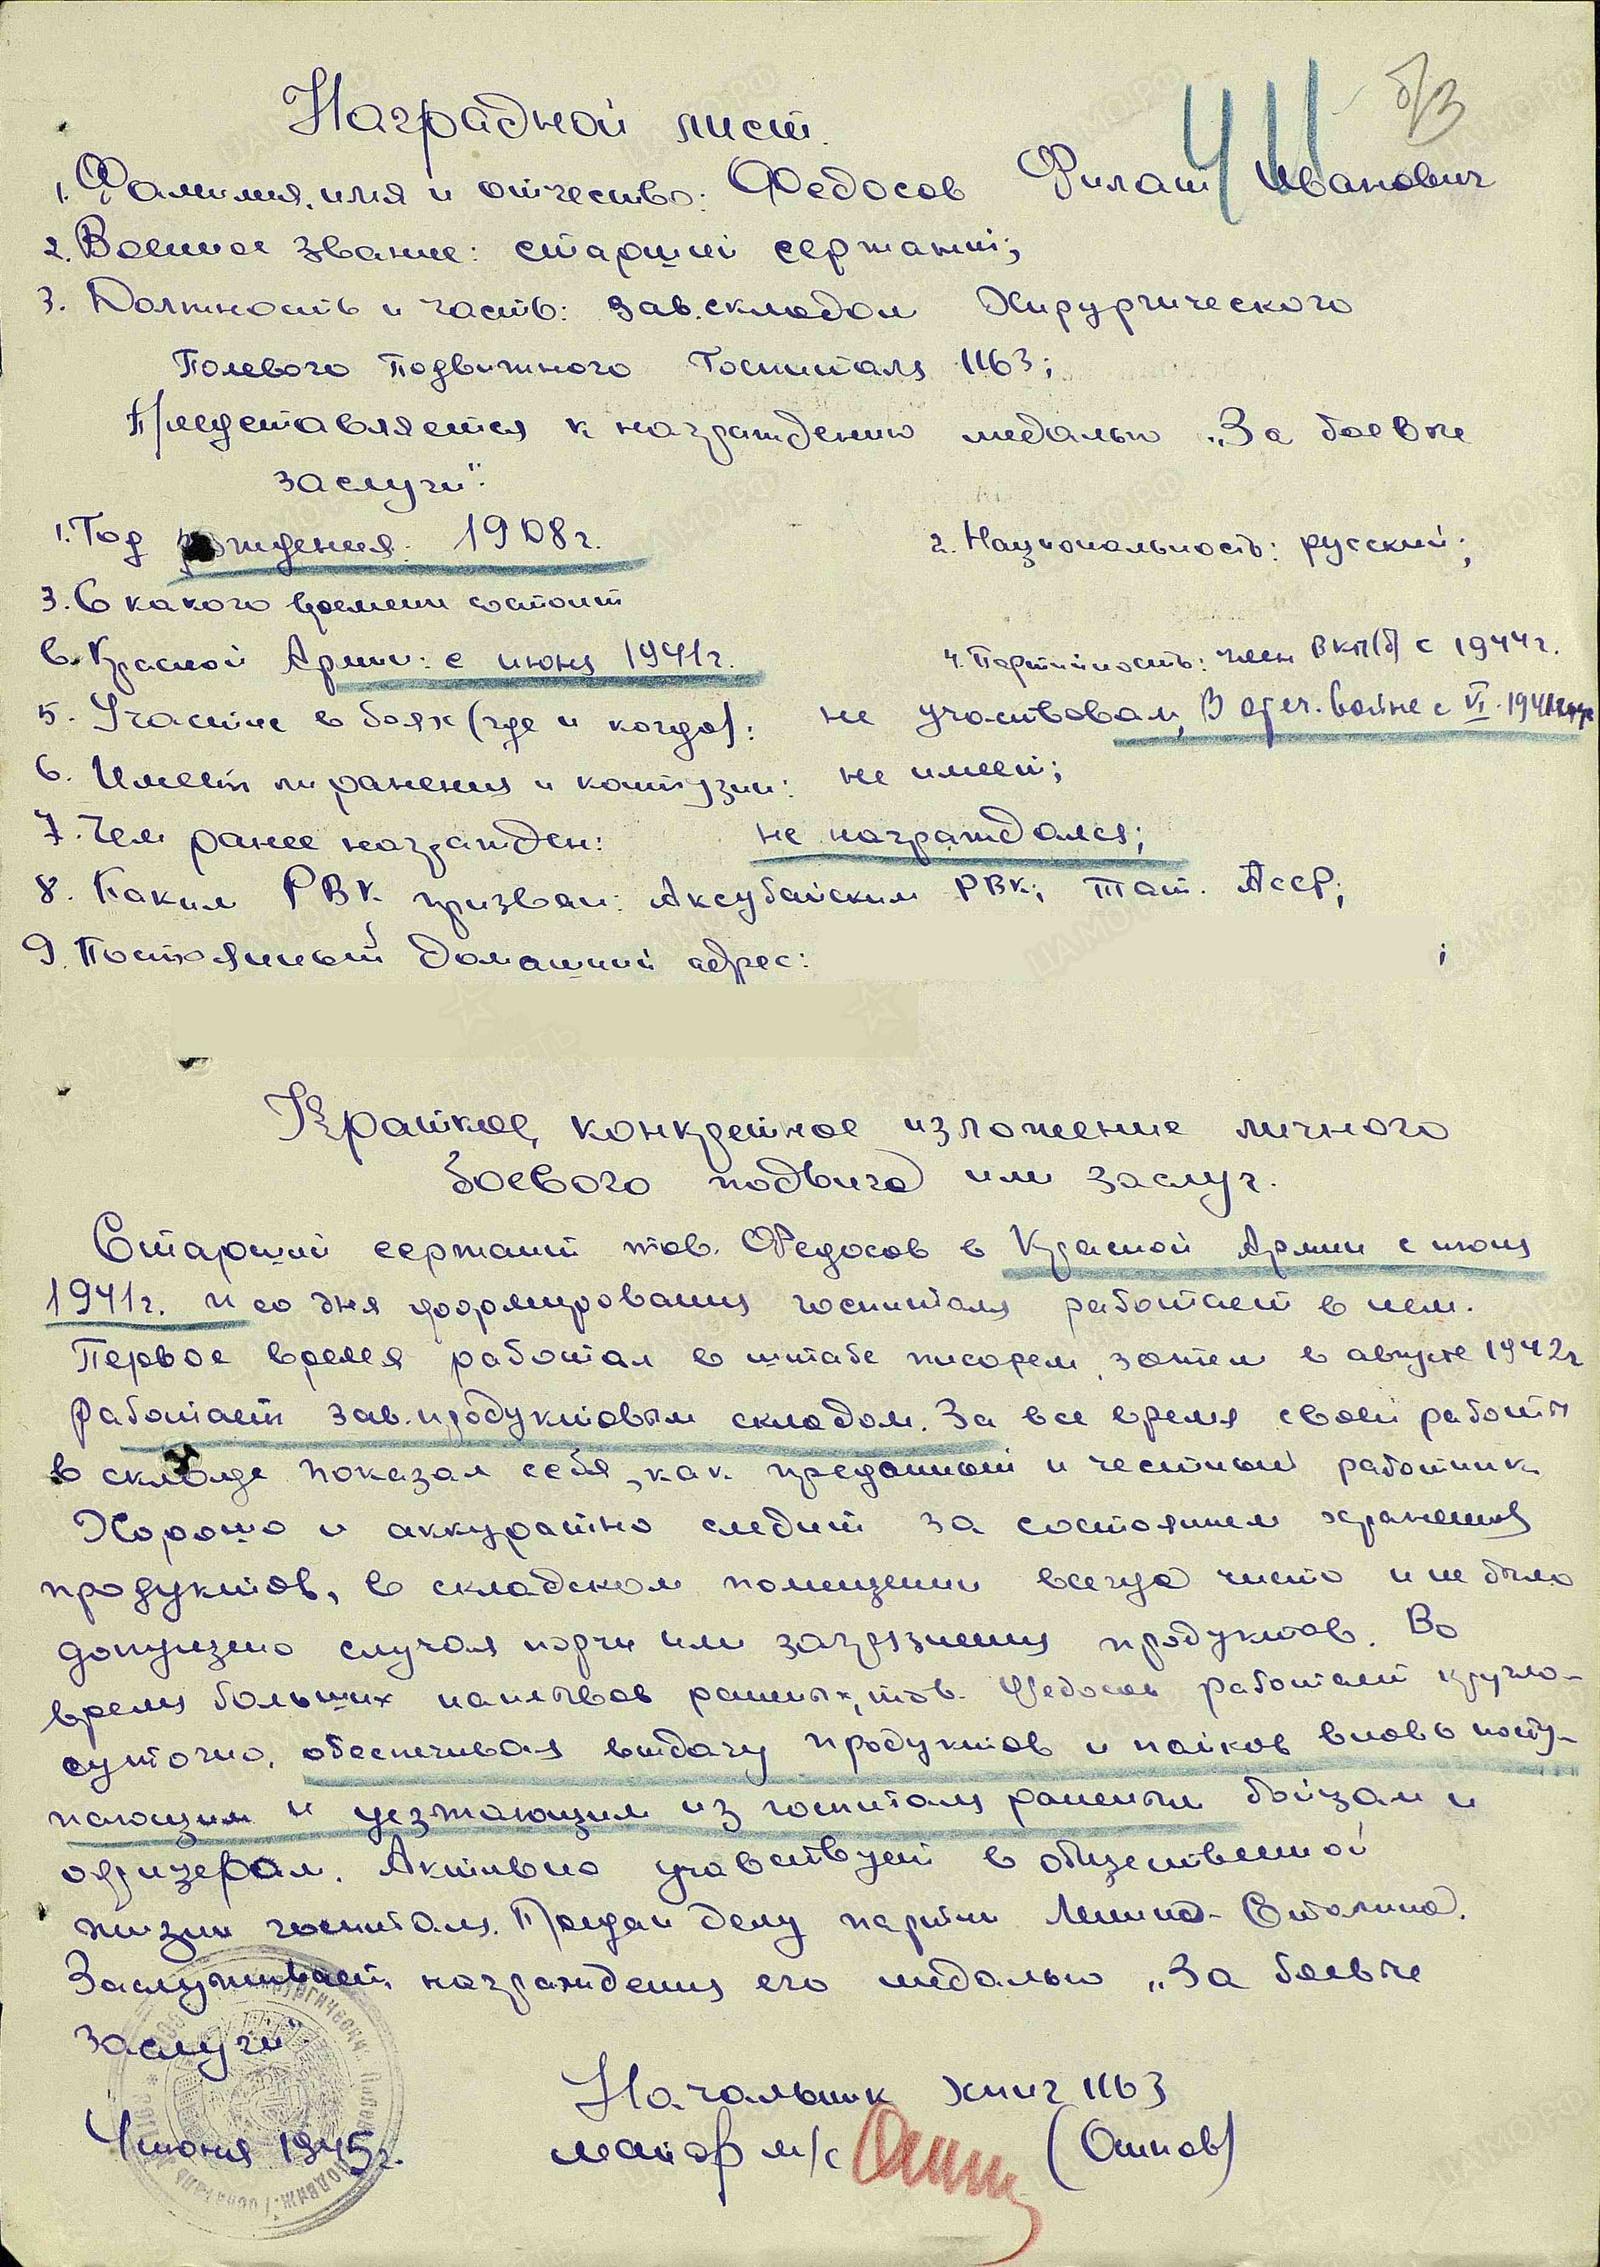 Наградной лист.
1. Фамилия, имя и отчество: Федосов Филат Иванович
2. Военное звание: старший сержант;
3. Должность и часть: зав.складом Хирургического
Полевого Подвижного Госпиталя 1163;
Представляется к награждению медалью „За боевые
заслуги":
1. Год рождения: 1908г. 2. Национальность: русский;
3. С какого времени состоит
в Красной Армии: с июня 1941г. 4. Партийность: член ВКП(б) с 1944г.
5. Участие в боях (где и когда): не участвовал, В отеч. войне с VI.1941
6. Имеет ли ранения и контузии: не имеет;
7. Чем ранее награжден: не награждался;
8. Каким РВК призван: Аксубайским РВК; Тат. АССР;
9. Постоянный домашний адрес: ;
Краткое, конкретное изложение личного
боевого подвига или заслуг.
Старший сержант тов. Федосов в Красной Армии с июня
1941г. и со дня формирования госпиталя работает в нем.
Первое время работал в штабе писарем, затем в августе 1942г
работает зав.продуктовым складом. За все время своей работы
в складе показал себя, как преданный и честный работник.
Хорошо и аккуратно следит за состоянием хранения
продуктов, в складском помещении всегда чисто и не было
допущено случая порчи или загрязнения продуктов. Во
время больших наплывов раненых, тов. Федосов работает кругло-
суточно, обеспечивая выдачу продуктов и пайков вновь посту-
пающим и уезжающим из госпиталя раненым бойцам и
офицерам. Активно участвует в общественной
жизни госпиталя. Предан делу партии Ленина-Сталина.
Заслуживает награждения его медалью „За боевые
заслуги".
Начальник ХППГ 1163
4 июня 1945г. майор м/с (Осипов)